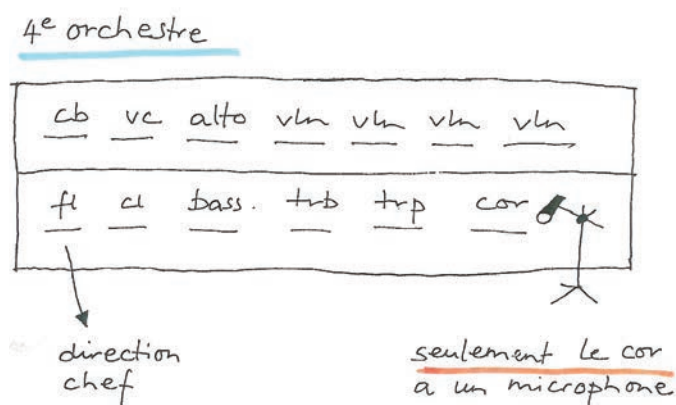 4e orchestre
cb vc alto vln vln vln vln
fl cl bass. trb trp cor
direction
chef
seulement le cor
a un microphone